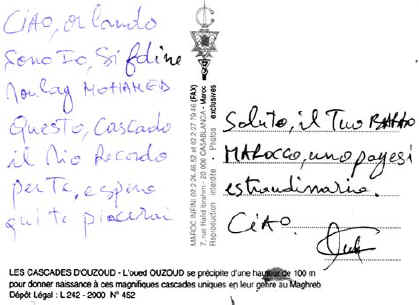 CiAO, orlando
Sono Io, Si fdine
Moulay MOHAMED
Questo, Cascado
il Mio Recordo
per Te, e spero
qui te piacerai
MAROC INFINI 02 2 26 48 62 et 02 2 27 79 46 (FAX)
7, rue Hafid Ibrahim - 20 000 CASABLANCA - Maroc
Reproduction interdite - Photos exclusives
Saluto, il Tuo
MAROCCO, uno payesi
estraudinario.
CiAO.
LES CASCADES D'OUZOUD - L'oued OUZOUD se précipite d'une hauteur de 100 m
pour donner naissance à ces magnifiques cascades uniques en leur genre au Maghreb
Dépôt Légal : L 242 - 2000 N° 452